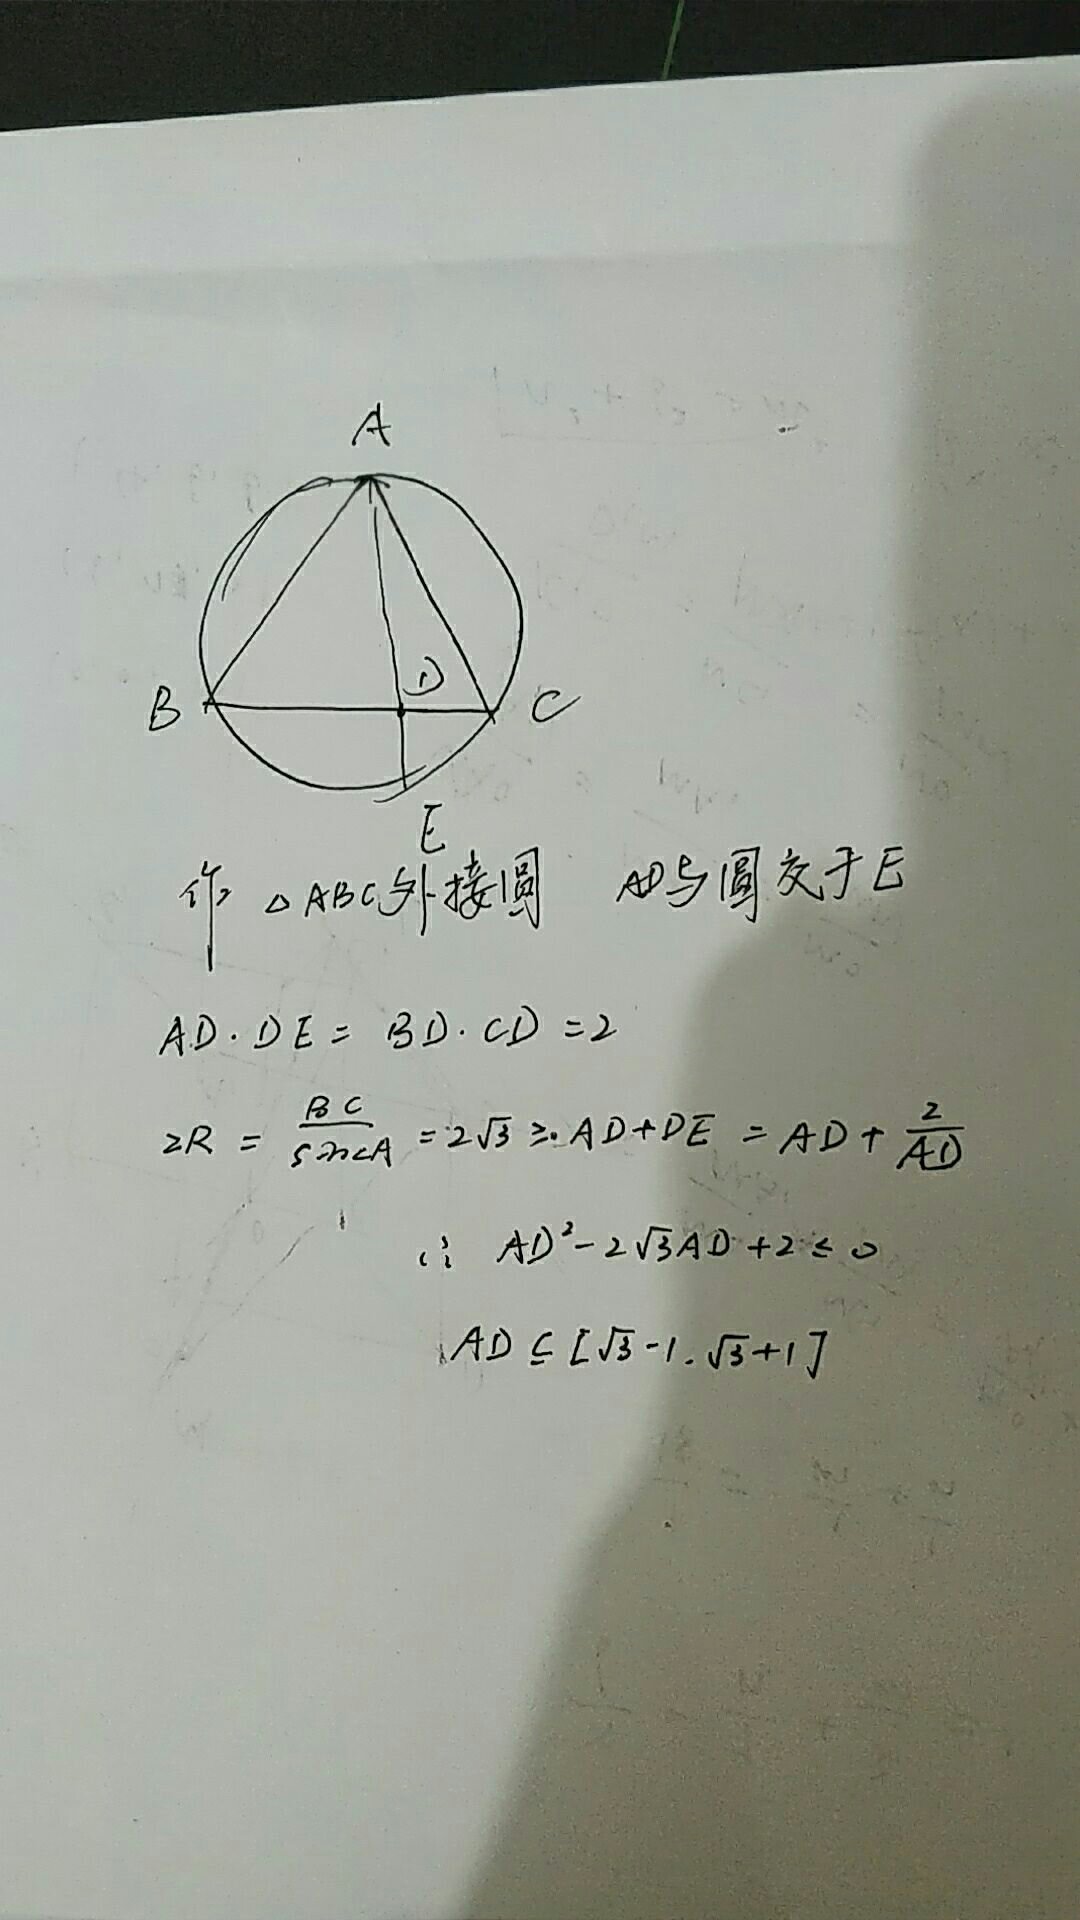 A
B
D
C
E
作 △ABC外接圆 AD与圆交于E
AD·DE = BD·CD = 2
2R = BC/sin∠A = 2√3 ≥ AD+DE = AD + 2/AD
∴ AD² - 2√3AD + 2 ≤ 0
AD ∈ [√3-1, √3+1]